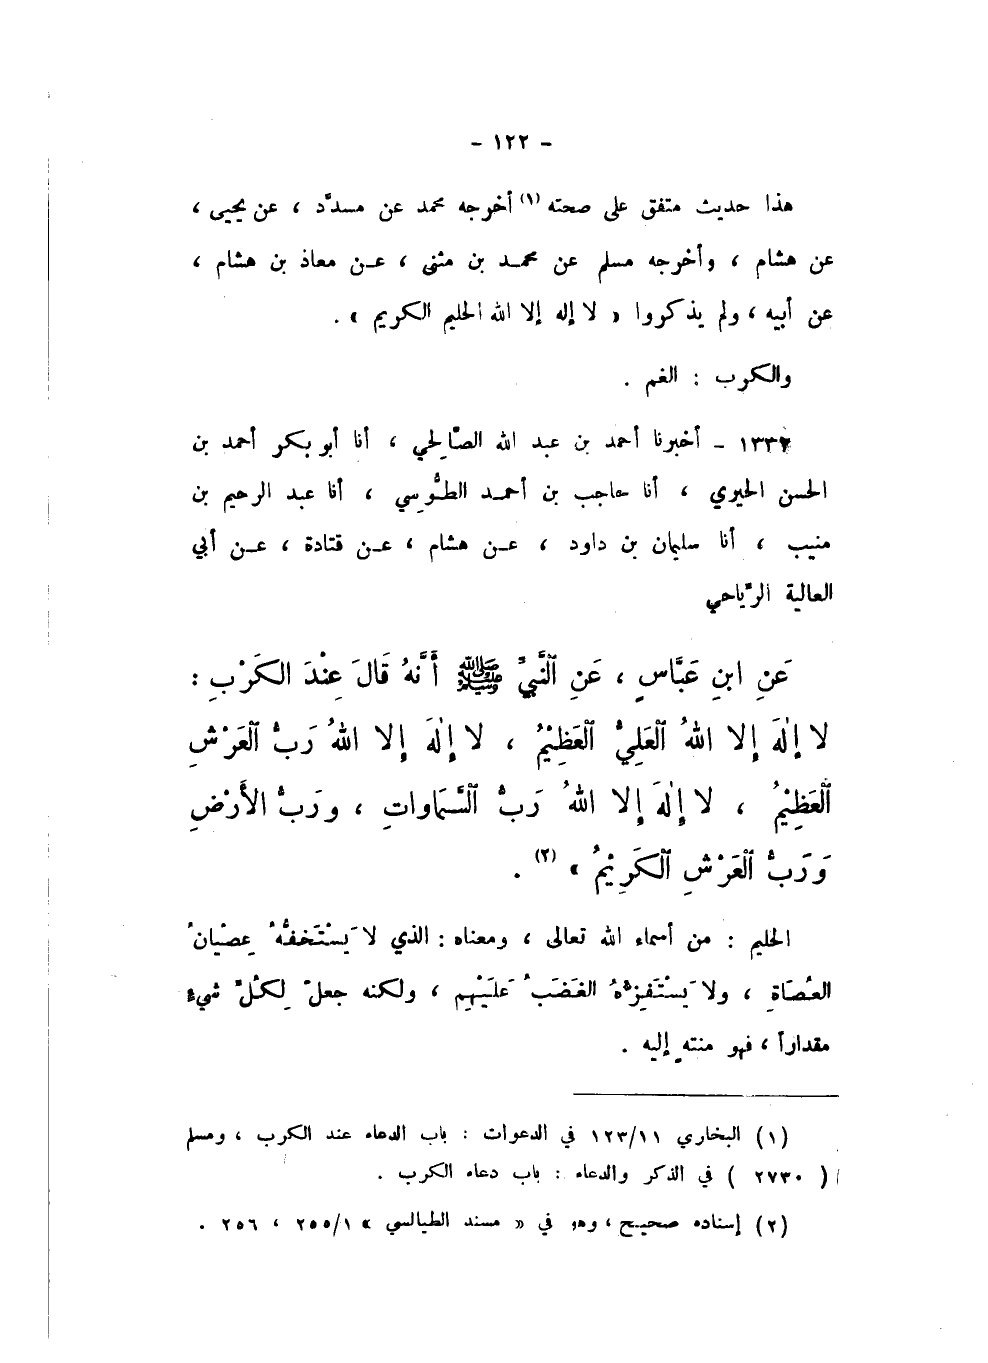 - ١٢٢ -
هذا حديث متفق على صحته (١) أخرجه محمد عن مسدَّد ، عن يحيى ،
عن هشام ، وأخرجه مسلم عن محمد بن مثنى ، عن معاذ بن هشام ،
عن أبيه ، ولم يذكروا « لا إله إلا الله الحليم الكريم » .
والكرب : الغم .
١٣٣٢ - أخبرنا أحمد بن عبد الله الصَّالحي ، أنا أبو بكر أحمد بن
الحسن الحيري ، أنا حاجب بن أحمد الطُّوسي ، أنا عبد الرحيم بن
منيب ، أنا سليمان بن داود ، عن هشام ، عن قتادة ، عن أبي
العالية الرِّياحي
عَنِ ابنِ عَبَّاسٍ ، عَنِ ٱلنَّبِيِّ ﷺ أَنَّهُ قَالَ عِنْدَ الكَرْبِ :
لا إِلٰهَ إلا اللهُ ٱلعَلِيُّ ٱلعَظِيْمُ ، لا إِلٰهَ إلا اللهُ رَبُّ ٱلعَرْشِ
ٱلعَظِيْمُ ، لا إِلٰهَ إلا اللهُ رَبُّ ٱلسَّمَاواتِ ، ورَبُّ الأَرْضِ
وَرَبُّ ٱلعَرْشِ ٱلكَرِيْمُ » (٢) .
الحليم : من أسماء الله تعالى ، ومعناه : الذي لا يَسْتَخفُّهُ عِصْيانُ
العُصَاةِ ، ولا يَسْتَفِزُّهُ الغَضَبُ عَلَيْهِم ، ولكنه جعلَ لِكُلِّ شيء
مقداراً ، فهو منتهٍ إليه .
(١) البخاري ١٢٣/١١ في الدعوات : باب الدعاء عند الكرب ، ومسلم
( ٢٧٣٠ ) في الذكر والدعاء : باب دعاء الكرب .
(٢) إسناده صحيح ، وهو في « مسند الطيالسي » ٢٥٥/١ ، ٢٥٦ .